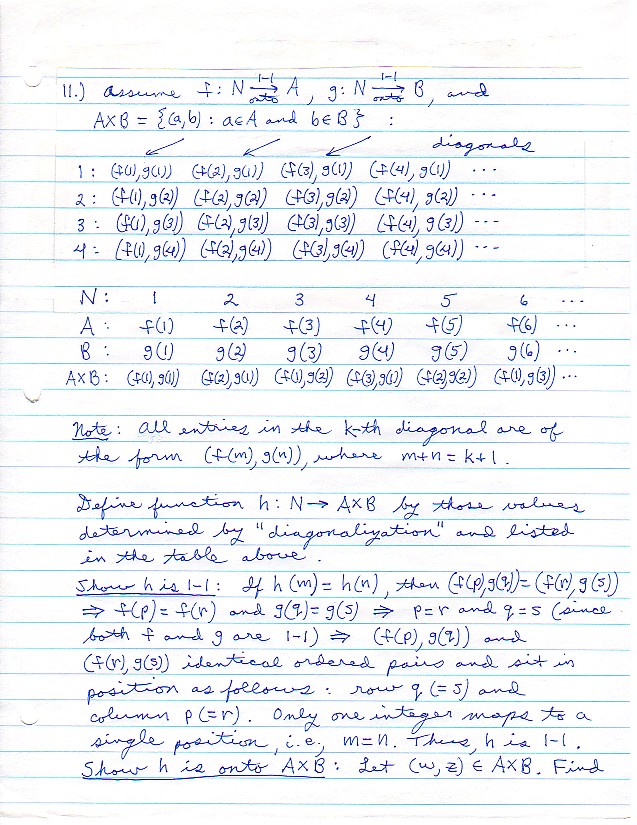 11.) Assume f: N 1-1 onto → A, g: N 1-1 onto → B, and
A×B = {(a,b) : a∈A and b∈B} :
diagonals
1 : (f(1),g(1)) (f(2),g(1)) (f(3),g(1)) (f(4),g(1)) ...
2 : (f(1),g(2)) (f(2),g(2)) (f(3),g(2)) (f(4),g(2)) ...
3 : (f(1),g(3)) (f(2),g(3)) (f(3),g(3)) (f(4),g(3)) ...
4 : (f(1),g(4)) (f(2),g(4)) (f(3),g(4)) (f(4),g(4)) ...
N : 1 2 3 4 5 6 ...
A : f(1) f(2) f(3) f(4) f(5) f(6) ...
B : g(1) g(2) g(3) g(4) g(5) g(6) ...
A×B : (f(1),g(1)) (f(2),g(1)) (f(1),g(2)) (f(3),g(1)) (f(2),g(2)) (f(1),g(3)) ...
Note : All entries in the k-th diagonal are of
the form (f(m),g(n)), where m+n = k+1.
Define function h: N → A×B by those values
determined by "diagonalization" and listed
in the table above.
Show h is 1-1 : If h(m) = h(n), then (f(p),g(q)) = (f(r),g(s))
⇒ f(p) = f(r) and g(q) = g(s) ⇒ p=r and q=s (since
both f and g are 1-1) ⇒ (f(p),g(q)) and
(f(r),g(s)) identical ordered pairs and sit in
position as follows : row q (=s) and
column p (=r). Only one integer maps to a
single position, i.e., m=n. Thus, h is 1-1.
Show h is onto A×B : Let (w,z) ∈ A×B. Find